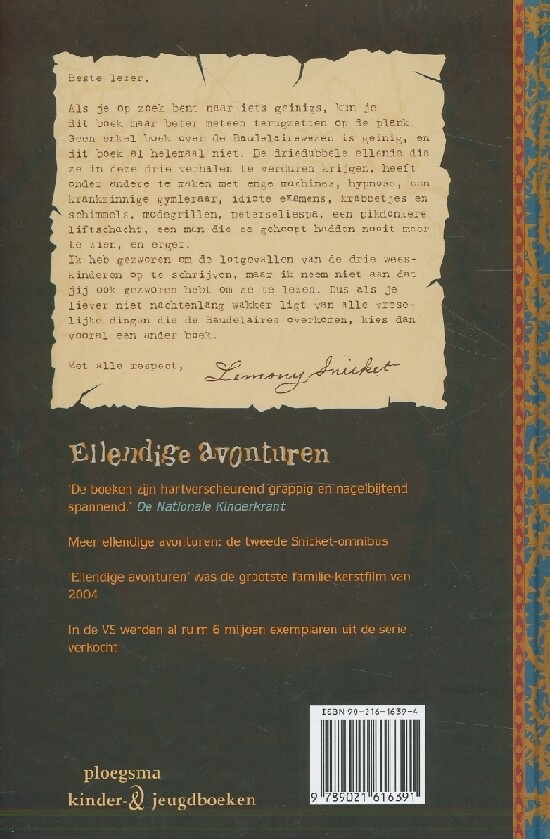 Beste lezer,
Als je op zoek bent naar iets geinigs, kun je
dit boek maar beter meteen terugzetten op de plank.
Geen enkel boek over de Baudelairewezen is geinig, en
dit boek al helemaal niet. De driedubbele ellende die
ze in deze drie verhalen te verduren krijgen, heeft
onder andere te maken met enge machines, hypnose, een
krankzinnige gymleraar, idiote examens, krabbetjes en
schimmels, modegrillen, peterseliespa, een pikdonkere
liftschacht, een man die ze gehoopt hadden nooit meer
te zien, en erger.
Ik heb gezworen om de lotgevallen van de drie wees-
kinderen op te schrijven, maar ik neem niet aan dat
jij ook gezworen hebt om ze te lezen. Dus als je
liever niet nachtenlang wakker ligt van alle vrese-
lijke dingen die de Baudelaires overkomen, kies dan
vooral een ander boek.
Met alle respect,
Lemony Snicket
Ellendige avonturen
'De boeken zijn hartverscheurend grappig en nagelbijtend
spannend.' De Nationale Kinderkrant
Meer ellendige avonturen: de tweede Snicket-omnibus
'Ellendige avonturen' was de grootste familie-kerstfilm van
2004
In de VS werden al ruim 6 miljoen exemplaren uit de serie
verkocht
ISBN 90-216-1639-4
9 789021 616391
ploegsma
kinder-& jeugdboeken